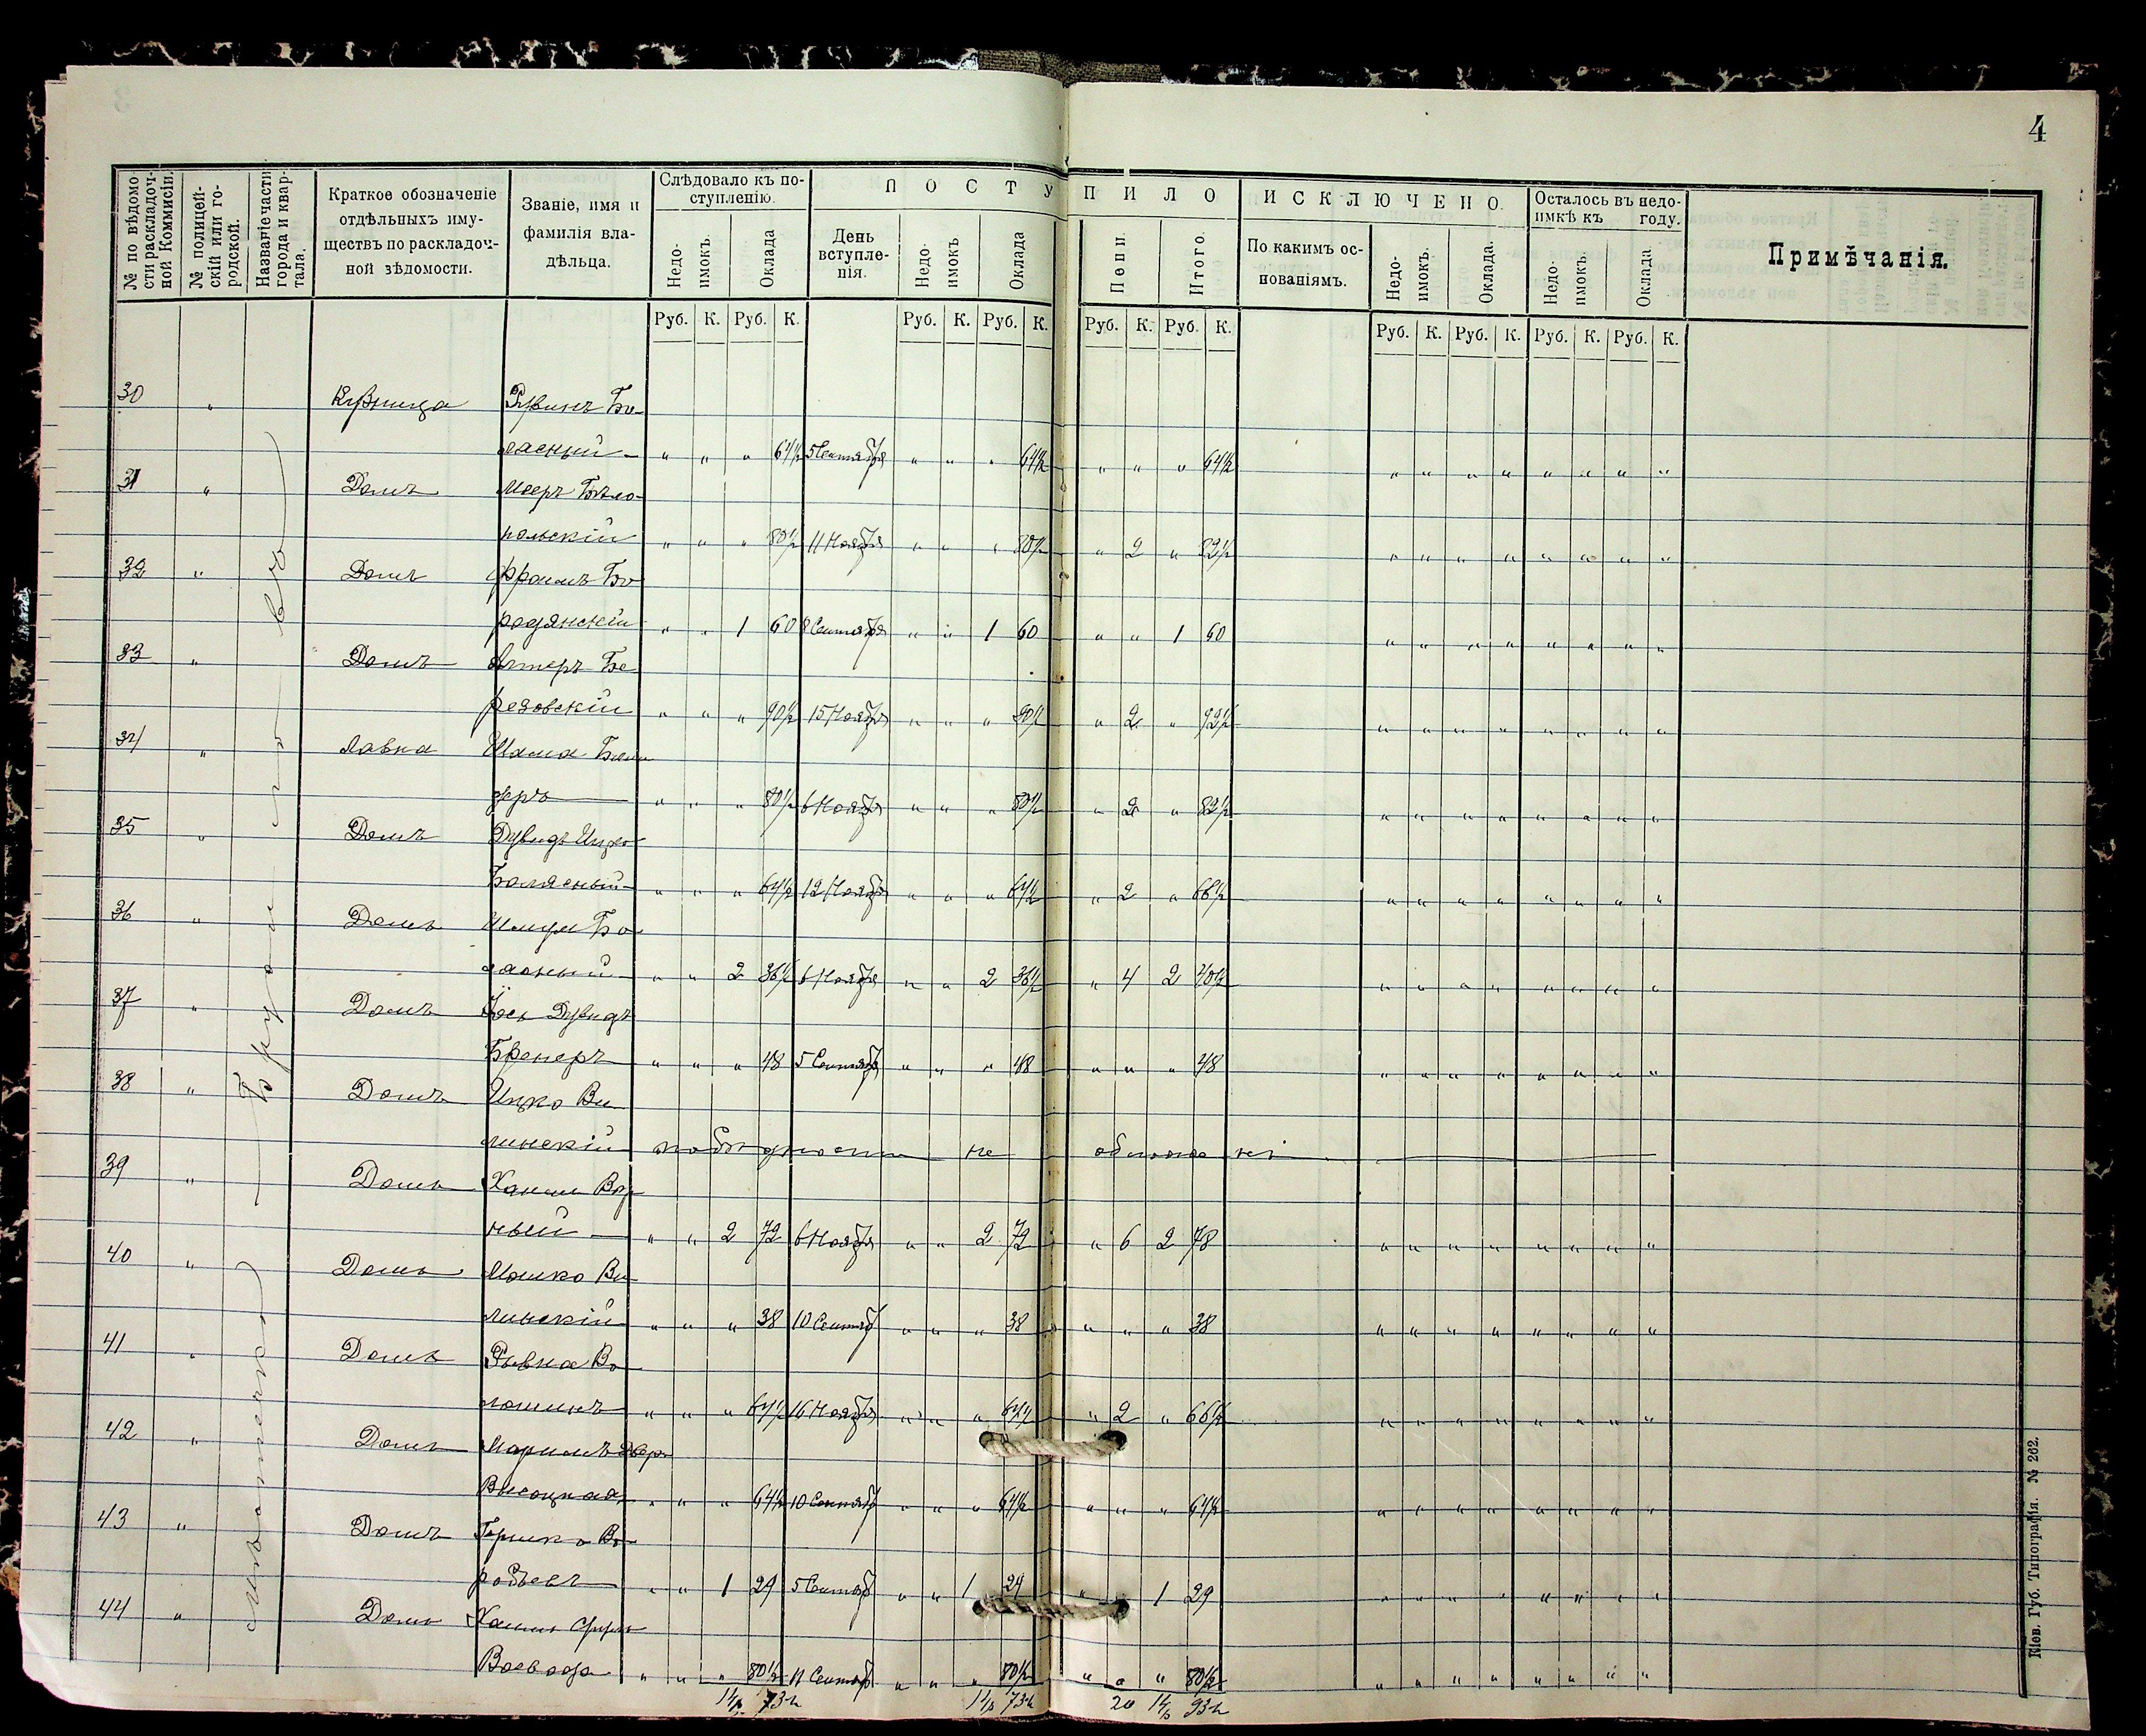 4
№ по вѣдомости раскладочной Коммисіи.
№ полицейскій или городской.
Названіе части города и квартала.
Краткое обозначеніе отдѣльныхъ имуществъ по раскладочной зѣдомости.
Званіе, имя и фамилія владѣльца.
Слѣдовало къ поступленію.
ПОСТУПИЛО
ИСКЛЮЧЕНО.
Осталось въ недоимкѣ къ году.
Примѣчанія.
Недоимокъ. Оклада День вступленія. Недоимокъ Оклада Пени Итого. По какимъ основаніямъ. Недоимокъ. Оклада. Недоимокъ. Оклада
Руб. К. Руб. К. Руб. К. Руб. К. Руб. К. Руб. К. Руб. К. Руб. К. Руб. К. Руб. К.
Мѣстечко Брусиловъ
30 " Кузница Рувинъ Бо-
ласный " " " 64½ 5 Сентября " " " 64½ " " " 64½ " " " " " " " "
31 " Домъ Мееръ Бѣло-
польскій " " " 80½ 11 Ноября " " " 80½ " 2 " 82½ " " " " " " " "
32 " Домъ Фроимъ Бо-
родянскій " " 1 60 8 Сентября " " 1 60 " " 1 60 " " " " " " " "
33 " Домъ Алтеръ Бе-
резовскій " " " 90½ 15 Ноября " " " 90½ " 2 " 92½ " " " " " " " "
34 " Лавка
" " " 80½ 6 Ноября " " " 80½ " 2 " 82½ " " " " " " " "
35 " Домъ Дувидъ Ицко
Болясный " " " 64½ 12 Ноября " " " 64½ " 2 " 66½ " " " " " " " "
36 " Домъ Шмул Бо-
ласный " " 2 36½ 6 Ноября " " 2 36½ " 4 2 40½ " " " " " " " "
37 " Домъ Йось Дувидъ
Бренеръ " " " 48 5 Сентяб " " " 48 " " " 48 " " " " " " " "
38 " Домъ Ицко Ви-
линскій по бѣдности не обложенъ
39 " Домъ Хаимъ
ный " " 2 72 6 Ноября " " 2 72 " 6 2 78 " " " " " " " "
40 " Домъ Мошко Ви-
линскій " " " 38 10 Сентяб " " " 38 " " " 38 " " " " " " " "
41 " Домъ Рывка Во-
лошинъ " " " 64½ 16 Ноября " " " 64½ " 2 " 66½ " " " " " " " "
42 " Домъ
Высоцкая " " " 64½ 10 Сентяб " " " 64½ " " " 64½ " " " " " " " "
43 " Домъ Гершко Во-
робьевъ " " 1 29 5 Сентяб " " 1 29 " " 1 29 " " " " " " " "
44 " Домъ Хаимъ Сруль
Воевода " " " 80½ 11 Сентяб " " " 80½ " " " 80½ " " " " " " " "
11р 73½ 11р 73½ 20 11р 93½
Кіев. Губ. Типографія. № 262.